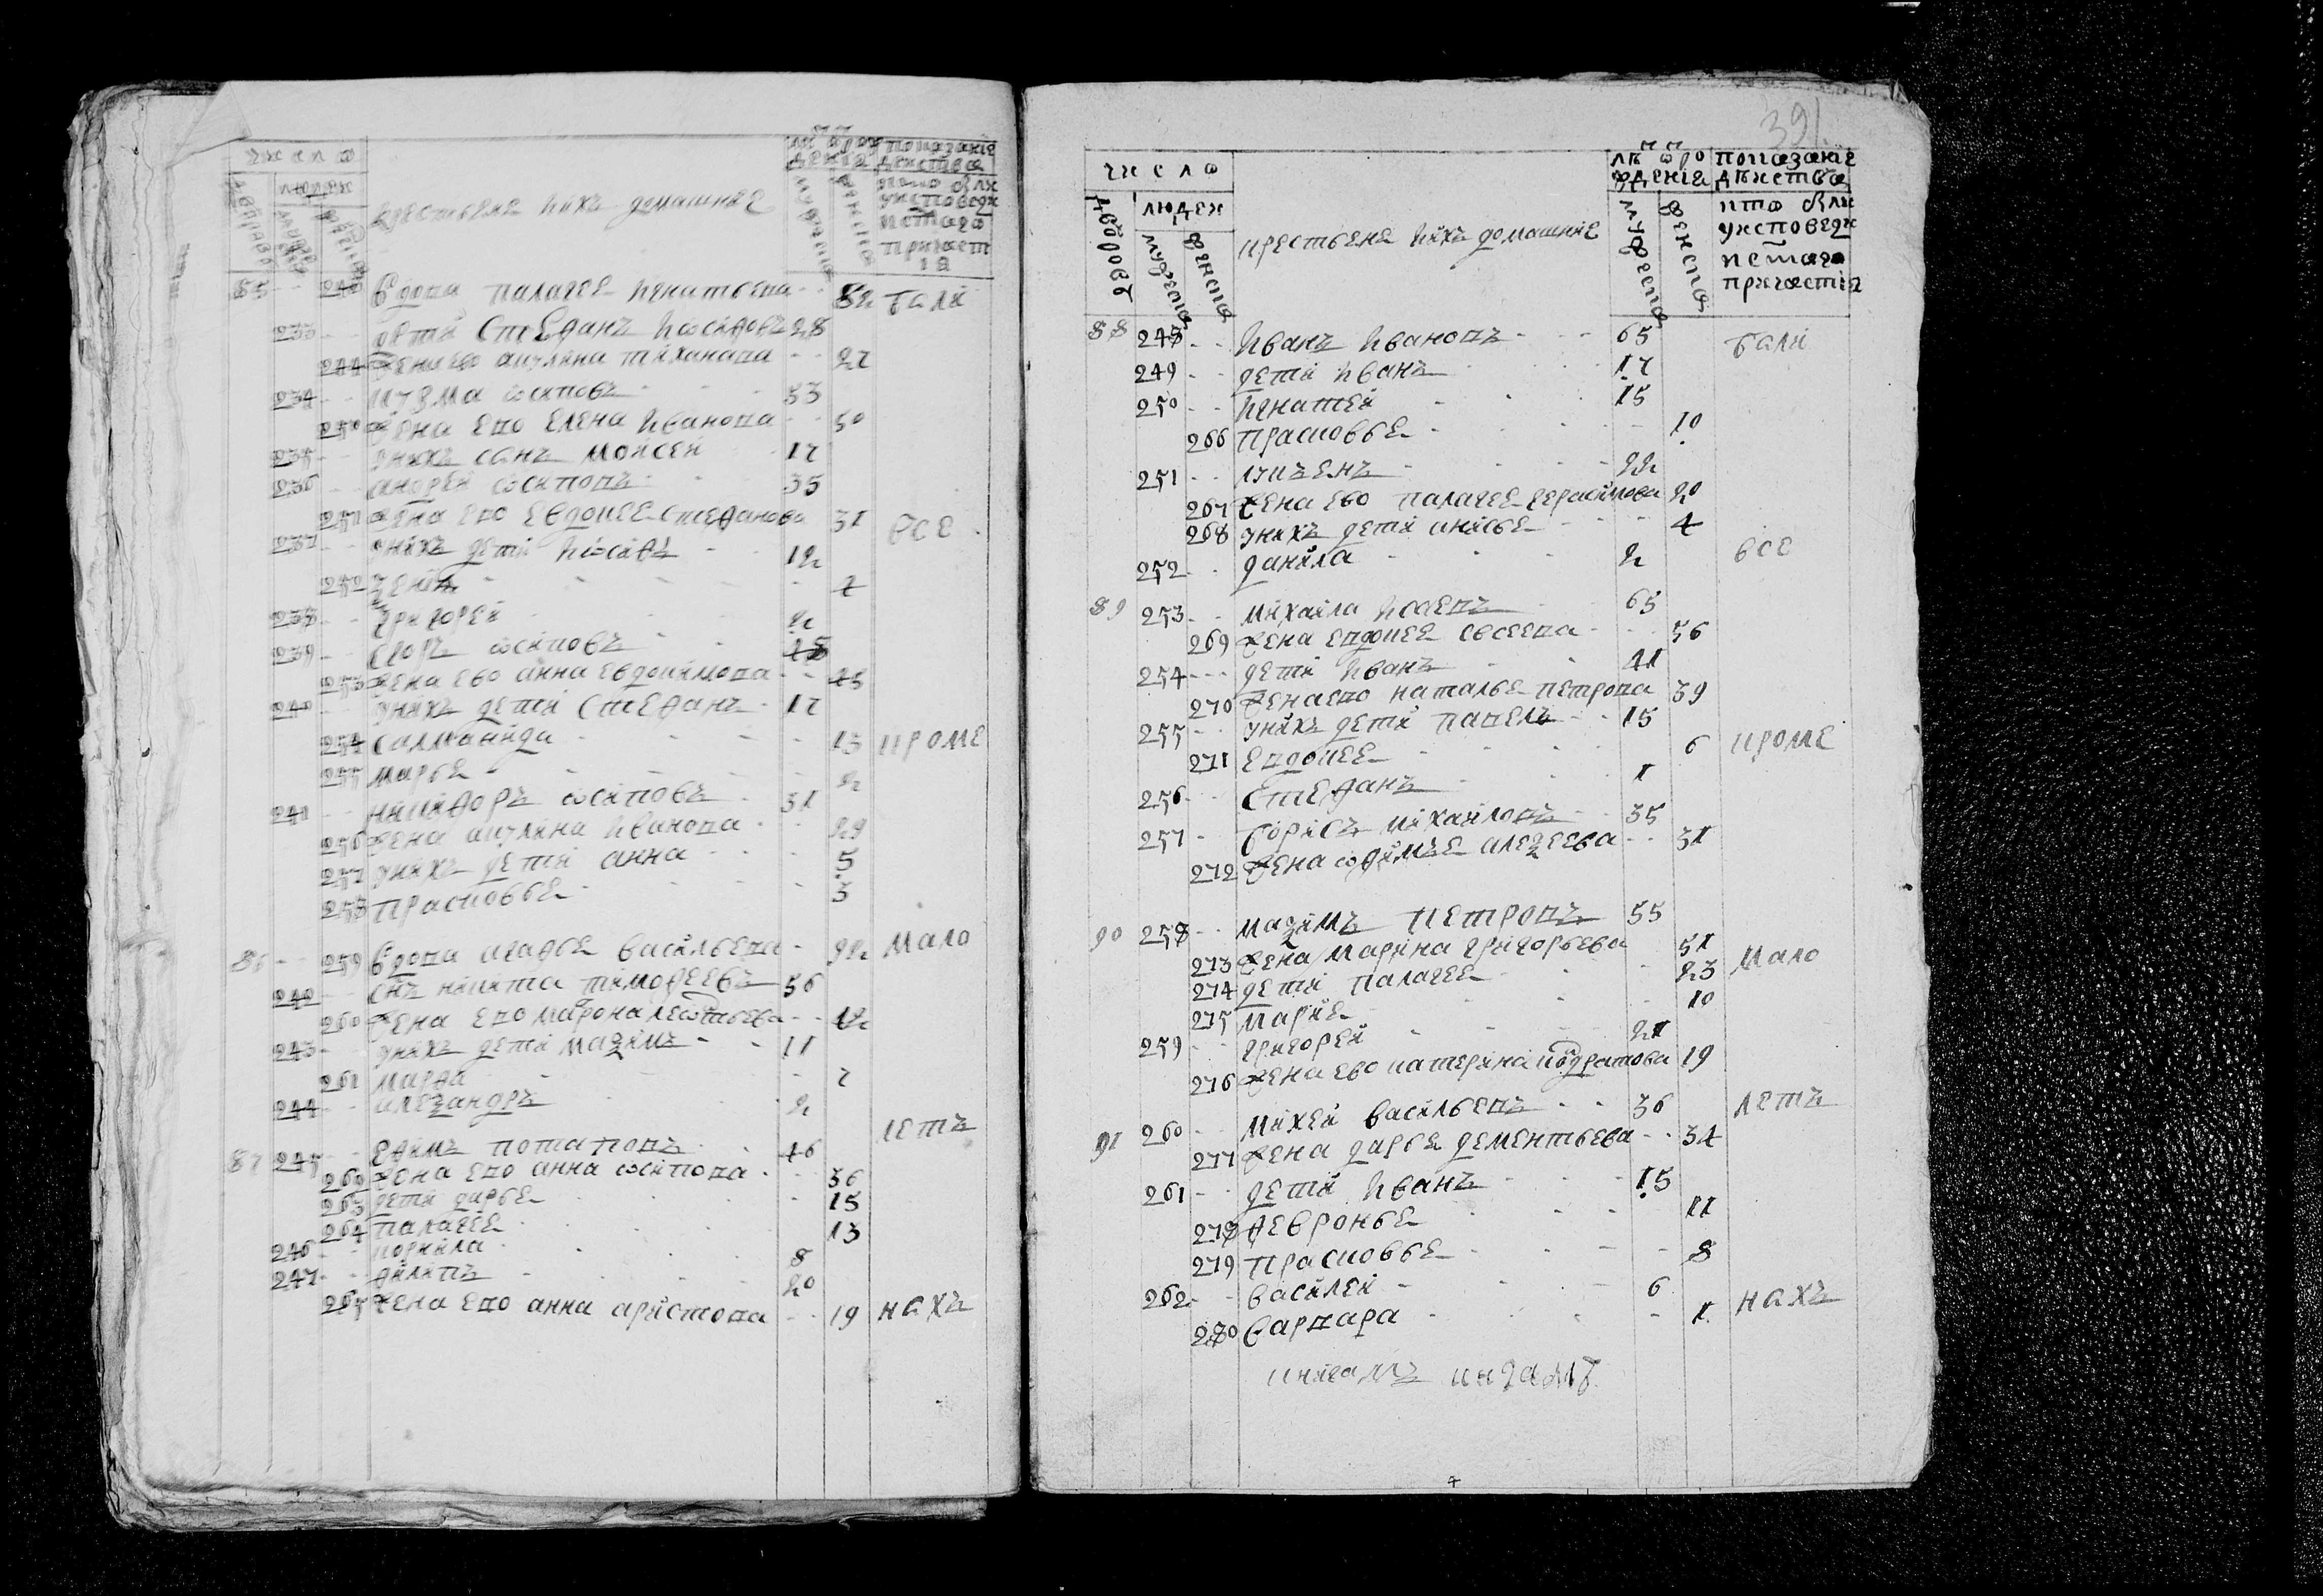 число
людей
крестьяне ихъ домашние
лѣ ѿро
показание
дения
действа
кто былъ
у исповеди
и стаго
причаст
ия
85 вдова палагеѧ игнатьева 82 были
233 дети стефанъ иѡсифовъ 28
жена ево акулина тиханава 27
234 кузма ѡсиповъ 53
250 жена ево елена иванова 50
235 у нихъ сынъ моисей 17
236 андрей ѡсиповъ 35
251 жена ево евдокеѧ стефанова 31 все
237 у нихъ дети иѡсифъ 12
252
238 григорей 2
239 егоръ ѡсиповъ
253 жена ево анна евдокимова
240 у нихъ дети стефанъ 17
254 саламанида 13 кроме
255 марьѧ 2
241 никифоръ ѡсиповъ 31
256 жена акулина иванова 29
257 у нихъ дети анна 5
258 прасковьѧ 3
86 259 вдова агафьѧ васильева мало
снъ никита тимофеевъ 56
260 жена ево матрона леѡтьева
243 у нихъ дети маѯимъ 11
261 марфа 7
244 алеѯандръ 2
летъ
87 245 ефимъ потаповъ 46
262 жена ево анна ѡсипова 36
263 дети дарьѧ 15
264 палагеѧ 13
246 корнила 8
247 филипъ 20
265 жена ево анна аристова 19 нахъ
391
число
лѣ ѿро
показание
ждения
дѣйства
дворовъ
людей
мужеска
женска
крестьяне ихъ домашние
мужеска
женска
кто былъ
у исповеди
и стаго
причастия
88 248 иванъ ивановъ 65 были
249 дети иванъ 17
250 игнатей 15
266 прасковьѧ 10
251 22
267 жена ево палагеѧ герасимова 20
268 у нихъ дети анисьѧ 4
252 данила 2 все
89 253 михаила исаевъ 65
269 жена евдокеѧ евсеева 56
254 дети иванъ 41
270 жена ево натальѧ петрова 39
255 у нихъ дети павелъ 15
271 евдокеѧ 6 кроме
256 стефанъ 1
257 борисъ михайловъ 35
272 жена ѡфимьѧ алеѯеева 31
90 258 маѯимъ петровъ 55
273 жена марина григорьева 51
274 дети палагеѧ 23 мало
275 мариѧ 10
259 григорей 21
276 жена ево катерина кодратова 19
91 260 михей васильевъ 36 летъ
277 жена дарьѧ дементьева 34
261 дети иванъ 15
278 февроньѧ 11
279 прасковьѧ 8
262 василей 6
280 варвара 1 нахъ
книгамъ